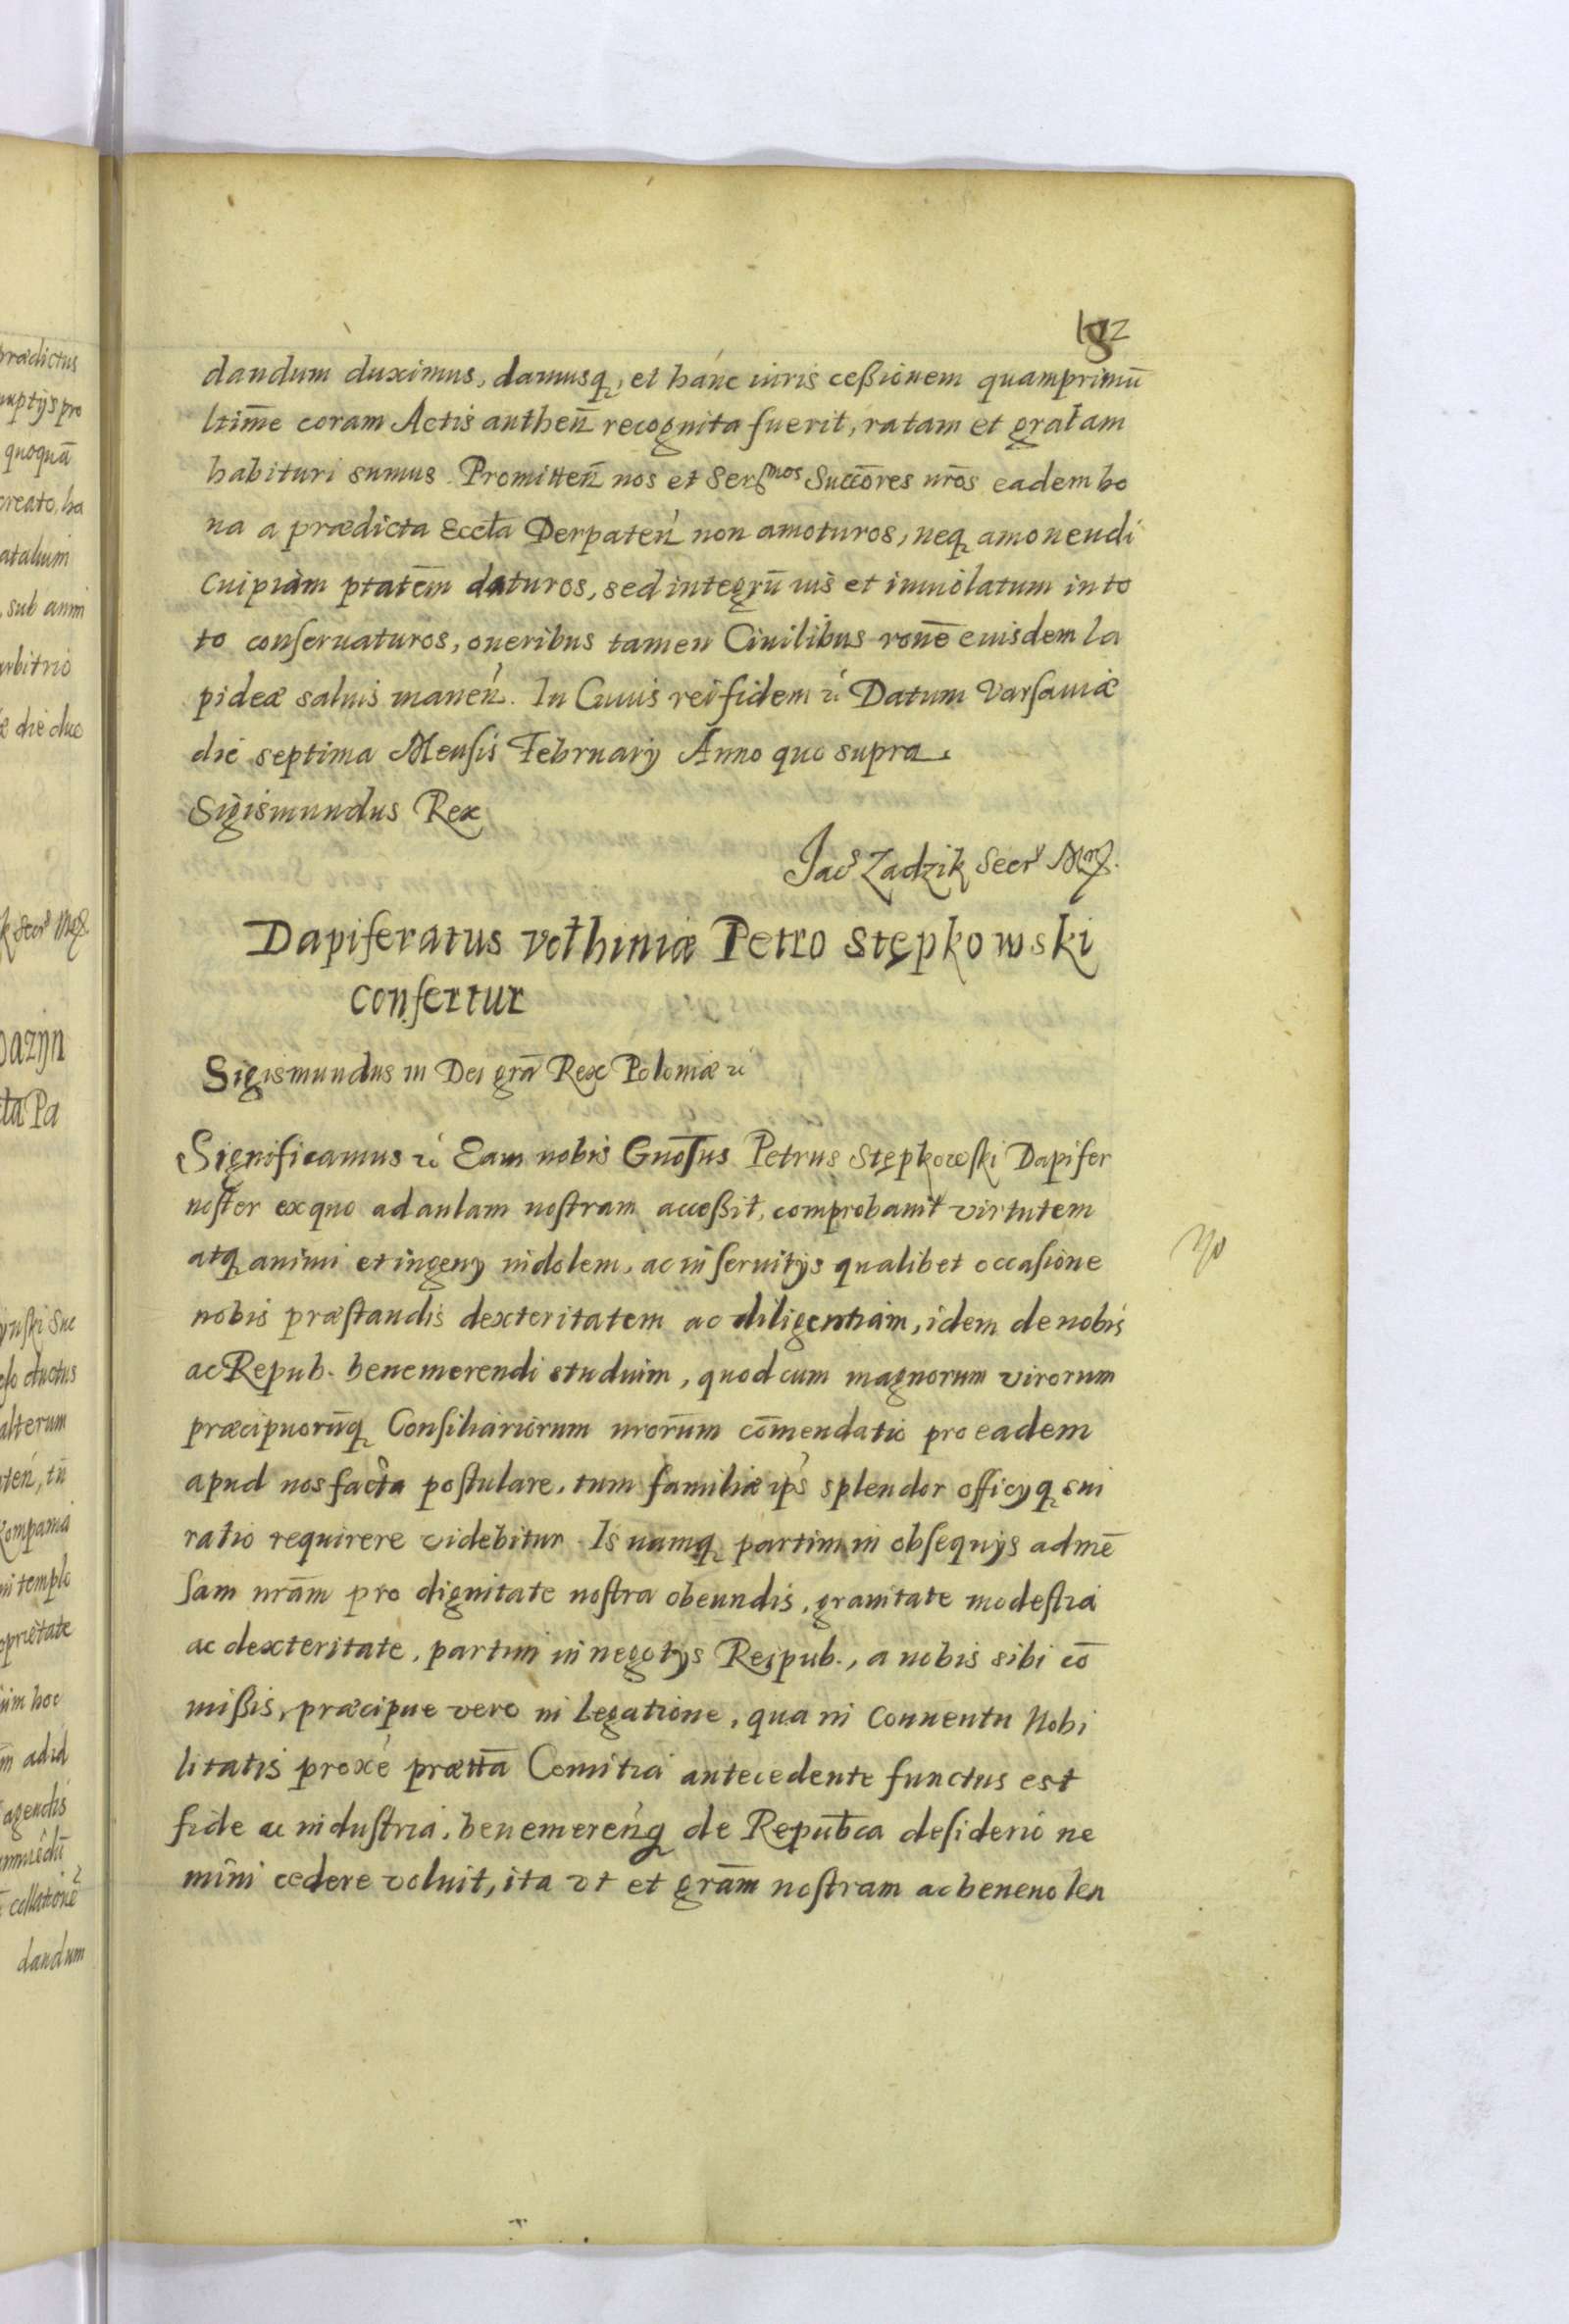 192
dandum duximus, damusq, et hanc iuris ceßionem quamprimū
ltim̄e coram Actis authen̄ recognita fuerit, ratam et gratam
habituri sumus. Promitten̄ nos et Ser^mos Succ̄ores nr̄os eadem bo
na a prædicta Eccła Derpaten̄ non amoturos, neq amouendi
cuipiam ptat̄em daturos, sed integrū ius et inuiolatum in to
to conseruaturos, oneribus tamen Ciuilibus ron̄e euisdem la
pideæ saluis manen̄. In Cuius rei fidem &c Datum Varsauiæ
die septima Mensis Februarij Anno quo supra.
Sigismundus Rex
Jac^s Zadzik Secr^s Mr̄.
Dapiferatus vołhiniæ Petro Stępkowski
confertur
Sigismundus III Dei grā Rex Poloniæ &c
Significamus &c Eam nobis Gnosus Petrus Stępkowski Dapifer
noster ex quo ad aulam nostram acceßit, comprobauit virtutem
atq animi et ingenij indolem, ac in seruitijs qualibet occasione
nobis præstandis dexteritatem ac diligentiam, idem de nobis
ac Repub. benemerendi studium, quod cum magnorum virorum
præcipuorūq Consiliariorum nror̄um com̄endatio pro eadem
apud nos facta postulare, tum familiæ ip̄s splendor officijq sui
ratio requirere videbitur. Is namq partim in obsequijs ad mē
sam nrām pro dignitate nostra obeundis, grauitate modestia
ac dexteritate, partim in negotijs Reipub., a nobis sibi cō
mißis, præcipue vero in Legatione, qua in Conuentu Nobi
litatis proxe prætt̄a Comitia antecedente functus est
fide ac industria, benemeren̄q de Republca desiderio ne
mini cedere voluit, ita vt et grām nostram ac beneuolen